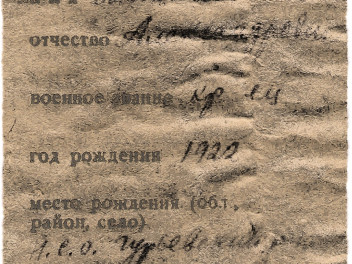 отчество Александрович
военное звание кр-ец
год рождения 1922
место рождения (обл.,
район, село)
Гурьевский